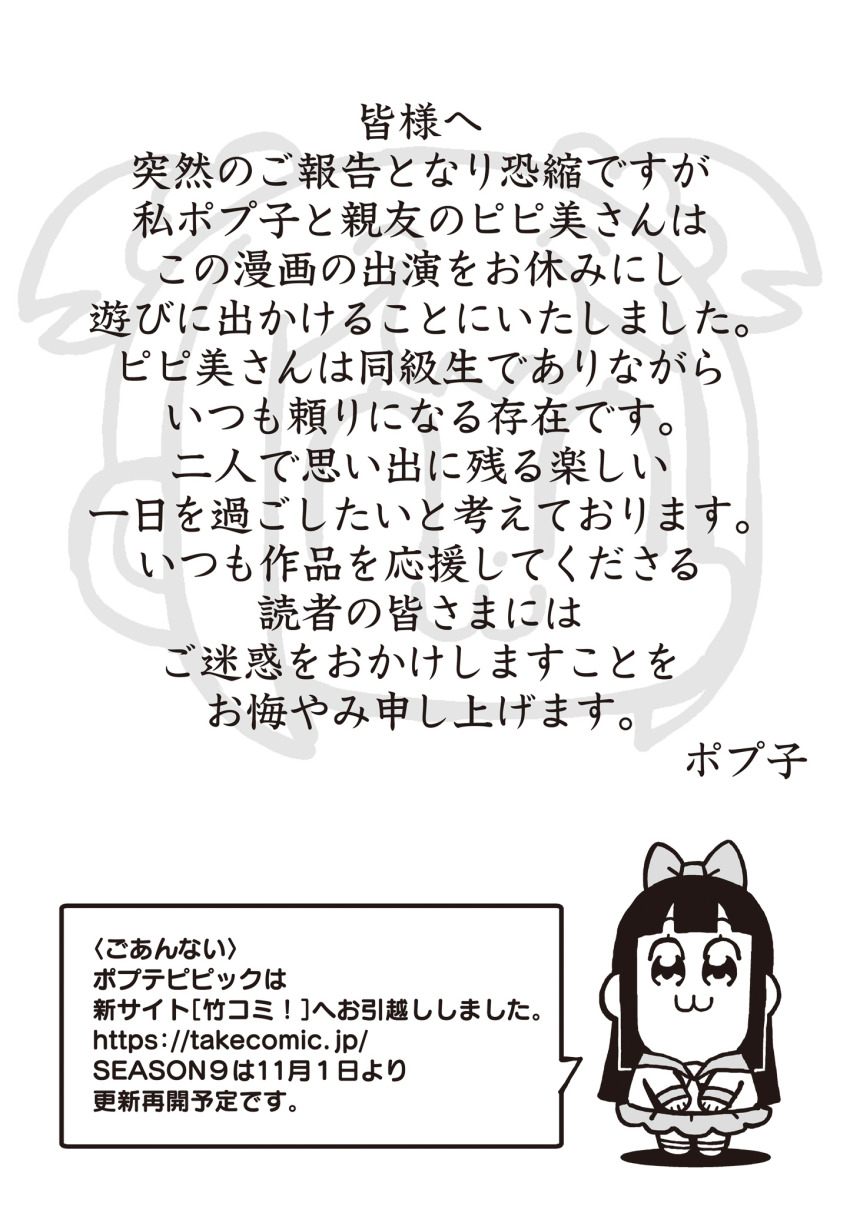 皆様へ
突然のご報告となり恐縮ですが
私ポプ子と親友のピピ美さんは
この漫画の出演をお休みにし
遊びに出かけることにいたしました。
ピピ美さんは同級生でありながら
いつも頼りになる存在です。
二人で思い出に残る楽しい
一日を過ごしたいと考えております。
いつも作品を応援してくださる
読者の皆さまには
ご迷惑をおかけしますことを
お悔やみ申し上げます。
ポプ子
〈ごあんない〉
ポプテピピックは
新サイト[竹コミ！]へお引越ししました。
https://takecomic.jp/
SEASON９は11月１日より
更新再開予定です。